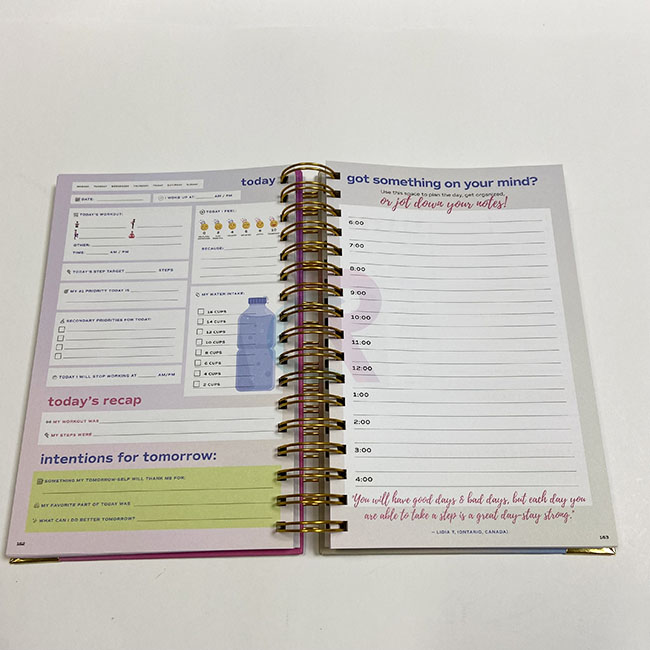 MONDAY TUESDAY WEDNESDAY THURSDAY FRIDAY SATURDAY SUNDAY
today
DATE:
I WOKE UP AT AM / PM
TODAY'S WORKOUT:
OTHER:
TIME: AM / PM
TODAY I FEEL:
0 2 4 6 8 10
BECAUSE:
TODAY'S STEP TARGET STEPS
MY #1 PRIORITY TODAY IS
SECONDARY PRIORITIES FOR TODAY:
TODAY I WILL STOP WORKING AT AM/PM
MY WATER INTAKE:
16 CUPS
14 CUPS
12 CUPS
10 CUPS
8 CUPS
6 CUPS
4 CUPS
2 CUPS
today's recap
MY WORKOUT WAS
MY STEPS WERE
intentions for tomorrow:
SOMETHING MY TOMORROW-SELF WILL THANK ME FOR:
MY FAVORITE PART OF TODAY WAS
WHAT CAN I DO BETTER TOMORROW?
162
got something on your mind?
Use this space to plan the day, get organized,
or jot down your notes!
6:00
7:00
8:00
9:00
10:00
11:00
12:00
1:00
2:00
3:00
4:00
R
"You will have good days & bad days, but each day you
are able to take a step is a great day-stay strong."
– LIDIA T, (ONTARIO, CANADA)
163